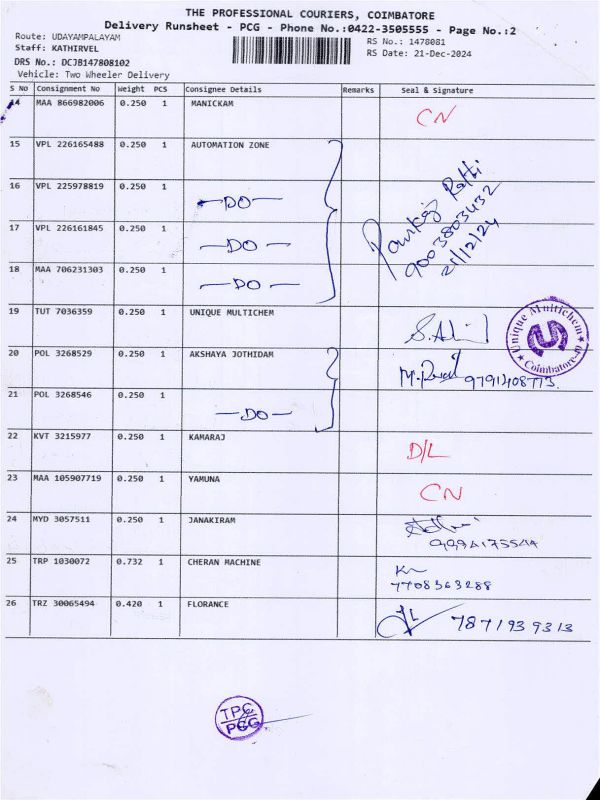 THE PROFESSIONAL COURIERS, COIMBATORE
Delivery Runsheet - PCG - Phone No.:0422-3505555 - Page No.:2
Route: UDAYAMPALAYAM
Staff: KATHIRVEL
RS No.: 1478081
RS Date: 21-Dec-2024
DRS No.: DCJB147808102
Vehicle: Two Wheeler Delivery
S No Consignment No Weight PCS Consignee Details Remarks Seal & Signature
14 MAA 866982006 0.250 1 MANICKAM CN
15 VPL 226165488 0.250 1 AUTOMATION ZONE
16 VPL 225978819 0.250 1 -DO-
Pankaj Rathi
9003803432
21/12/24
17 VPL 226161845 0.250 1 -DO-
18 MAA 706231303 0.250 1 -DO-
19 TUT 7036359 0.250 1 UNIQUE MULTICHEM
Unique Multichem
Coimbatore
20 POL 3268529 0.250 1 AKSHAYA JOTHIDAM 9791408773
21 POL 3268546 0.250 1 -DO-
22 KVT 3215977 0.250 1 KAMARAJ D/L
23 MAA 105907719 0.250 1 YAMUNA CN
24 MYD 3057511 0.250 1 JANAKIRAM
25 TRP 1030072 0.732 1 CHERAN MACHINE
7708363288
26 TRZ 30065494 0.420 1 FLORANCE 7871939313
TPC
PCG